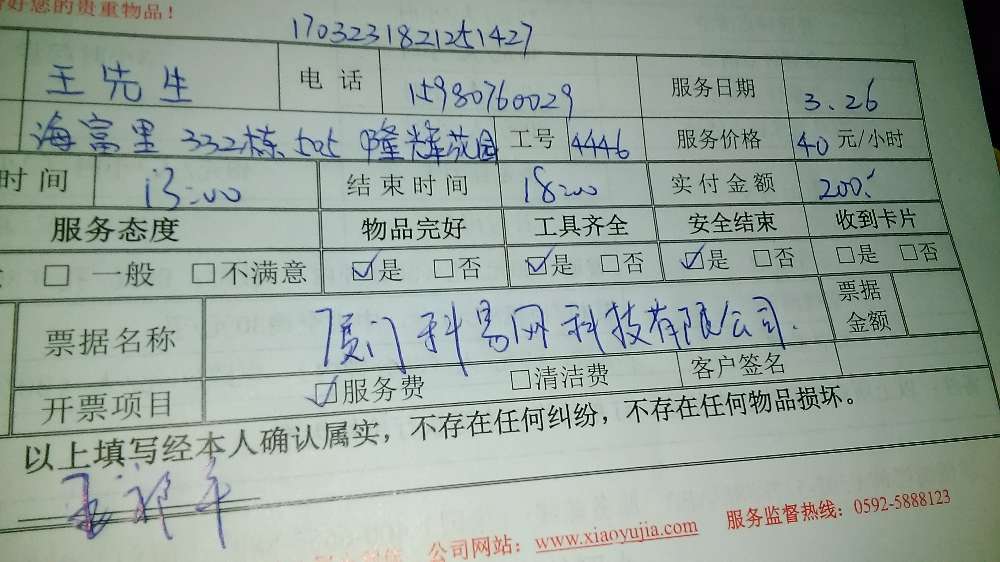 好您的贵重物品！
1703231821251427
王先生 电话 15980760029 服务日期 3.26
海富里 332栋 505 隆辉花园 工号 4446 服务价格 40 元/小时
时间 13:00 结束时间 18:00 实付金额 200.
服务态度 物品完好 工具齐全 安全结束 收到卡片
□ 一般 □不满意 ☑是 □否 ☑是 □否 ☑是 □否 □是 □否
票据名称 厦门科易网科技有限公司. 票据金额
开票项目 ☑服务费 □清洁费 客户签名
以上填写经本人确认属实，不存在任何纠纷，不存在任何物品损坏。
公司网站：www.xiaoyujia.com 服务监督热线：0592-5888123